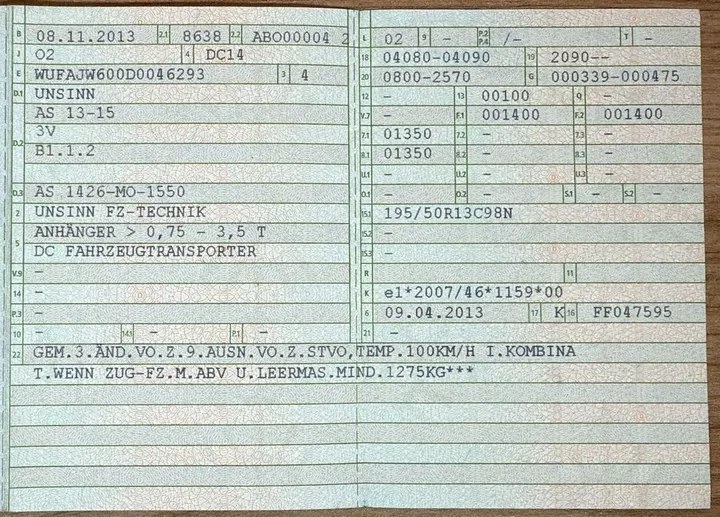 B 08.11.2013 2.1 8638 2.2 ABO00004 2
J O2 4 DC14
E WUFAJW600D0046293 3 4
D.1 UNSINN
AS 13-15
D.2 3V
B1.1.2
D.3 AS 1426-MO-1550
2 UNSINN FZ-TECHNIK
5 ANHÄNGER > 0,75 - 3,5 T
DC FAHRZEUGTRANSPORTER
V.9 -
14 -
P.3 -
10 - 14.1 - P.1 -
L 02 9 - P.2 P.4 /- T -
18 04080-04090 19 2090--
20 0800-2570 G 000339-000475
12 - 13 00100 Q -
V.7 - F.1 001400 F.2 001400
7.1 01350 7.2 - 7.3 -
8.1 01350 8.2 - 8.3 -
U.1 - U.2 - U.3 -
O.1 - O.2 - S.1 - S.2 -
15.1 195/50R13C98N
15.2 -
15.3 -
R 11
K e1*2007/46*1159*00
6 09.04.2013 17 K 16 FF047595
21 -
22 GEM.3.ÄND.VO.Z.9.AUSN.VO.Z.STVO,TEMP.100KM/H I.KOMBINA
T.WENN ZUG-FZ.M.ABV U.LEERMAS.MIND.1275KG***